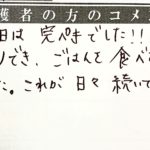 護者の方のコメ
日は完ぺきでした!!
りでき、ごはんを食べ
た。これが日々続いて